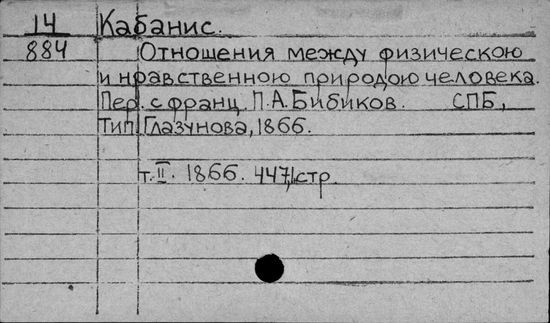 14 Кабанис.
884 Отношения между физическою
и нравственною природою человека.
Пер. с франц. П.А.Бибиков. СПБ,
Тип. Глазунова, 1866.
т. II. 1866. 447, стр.